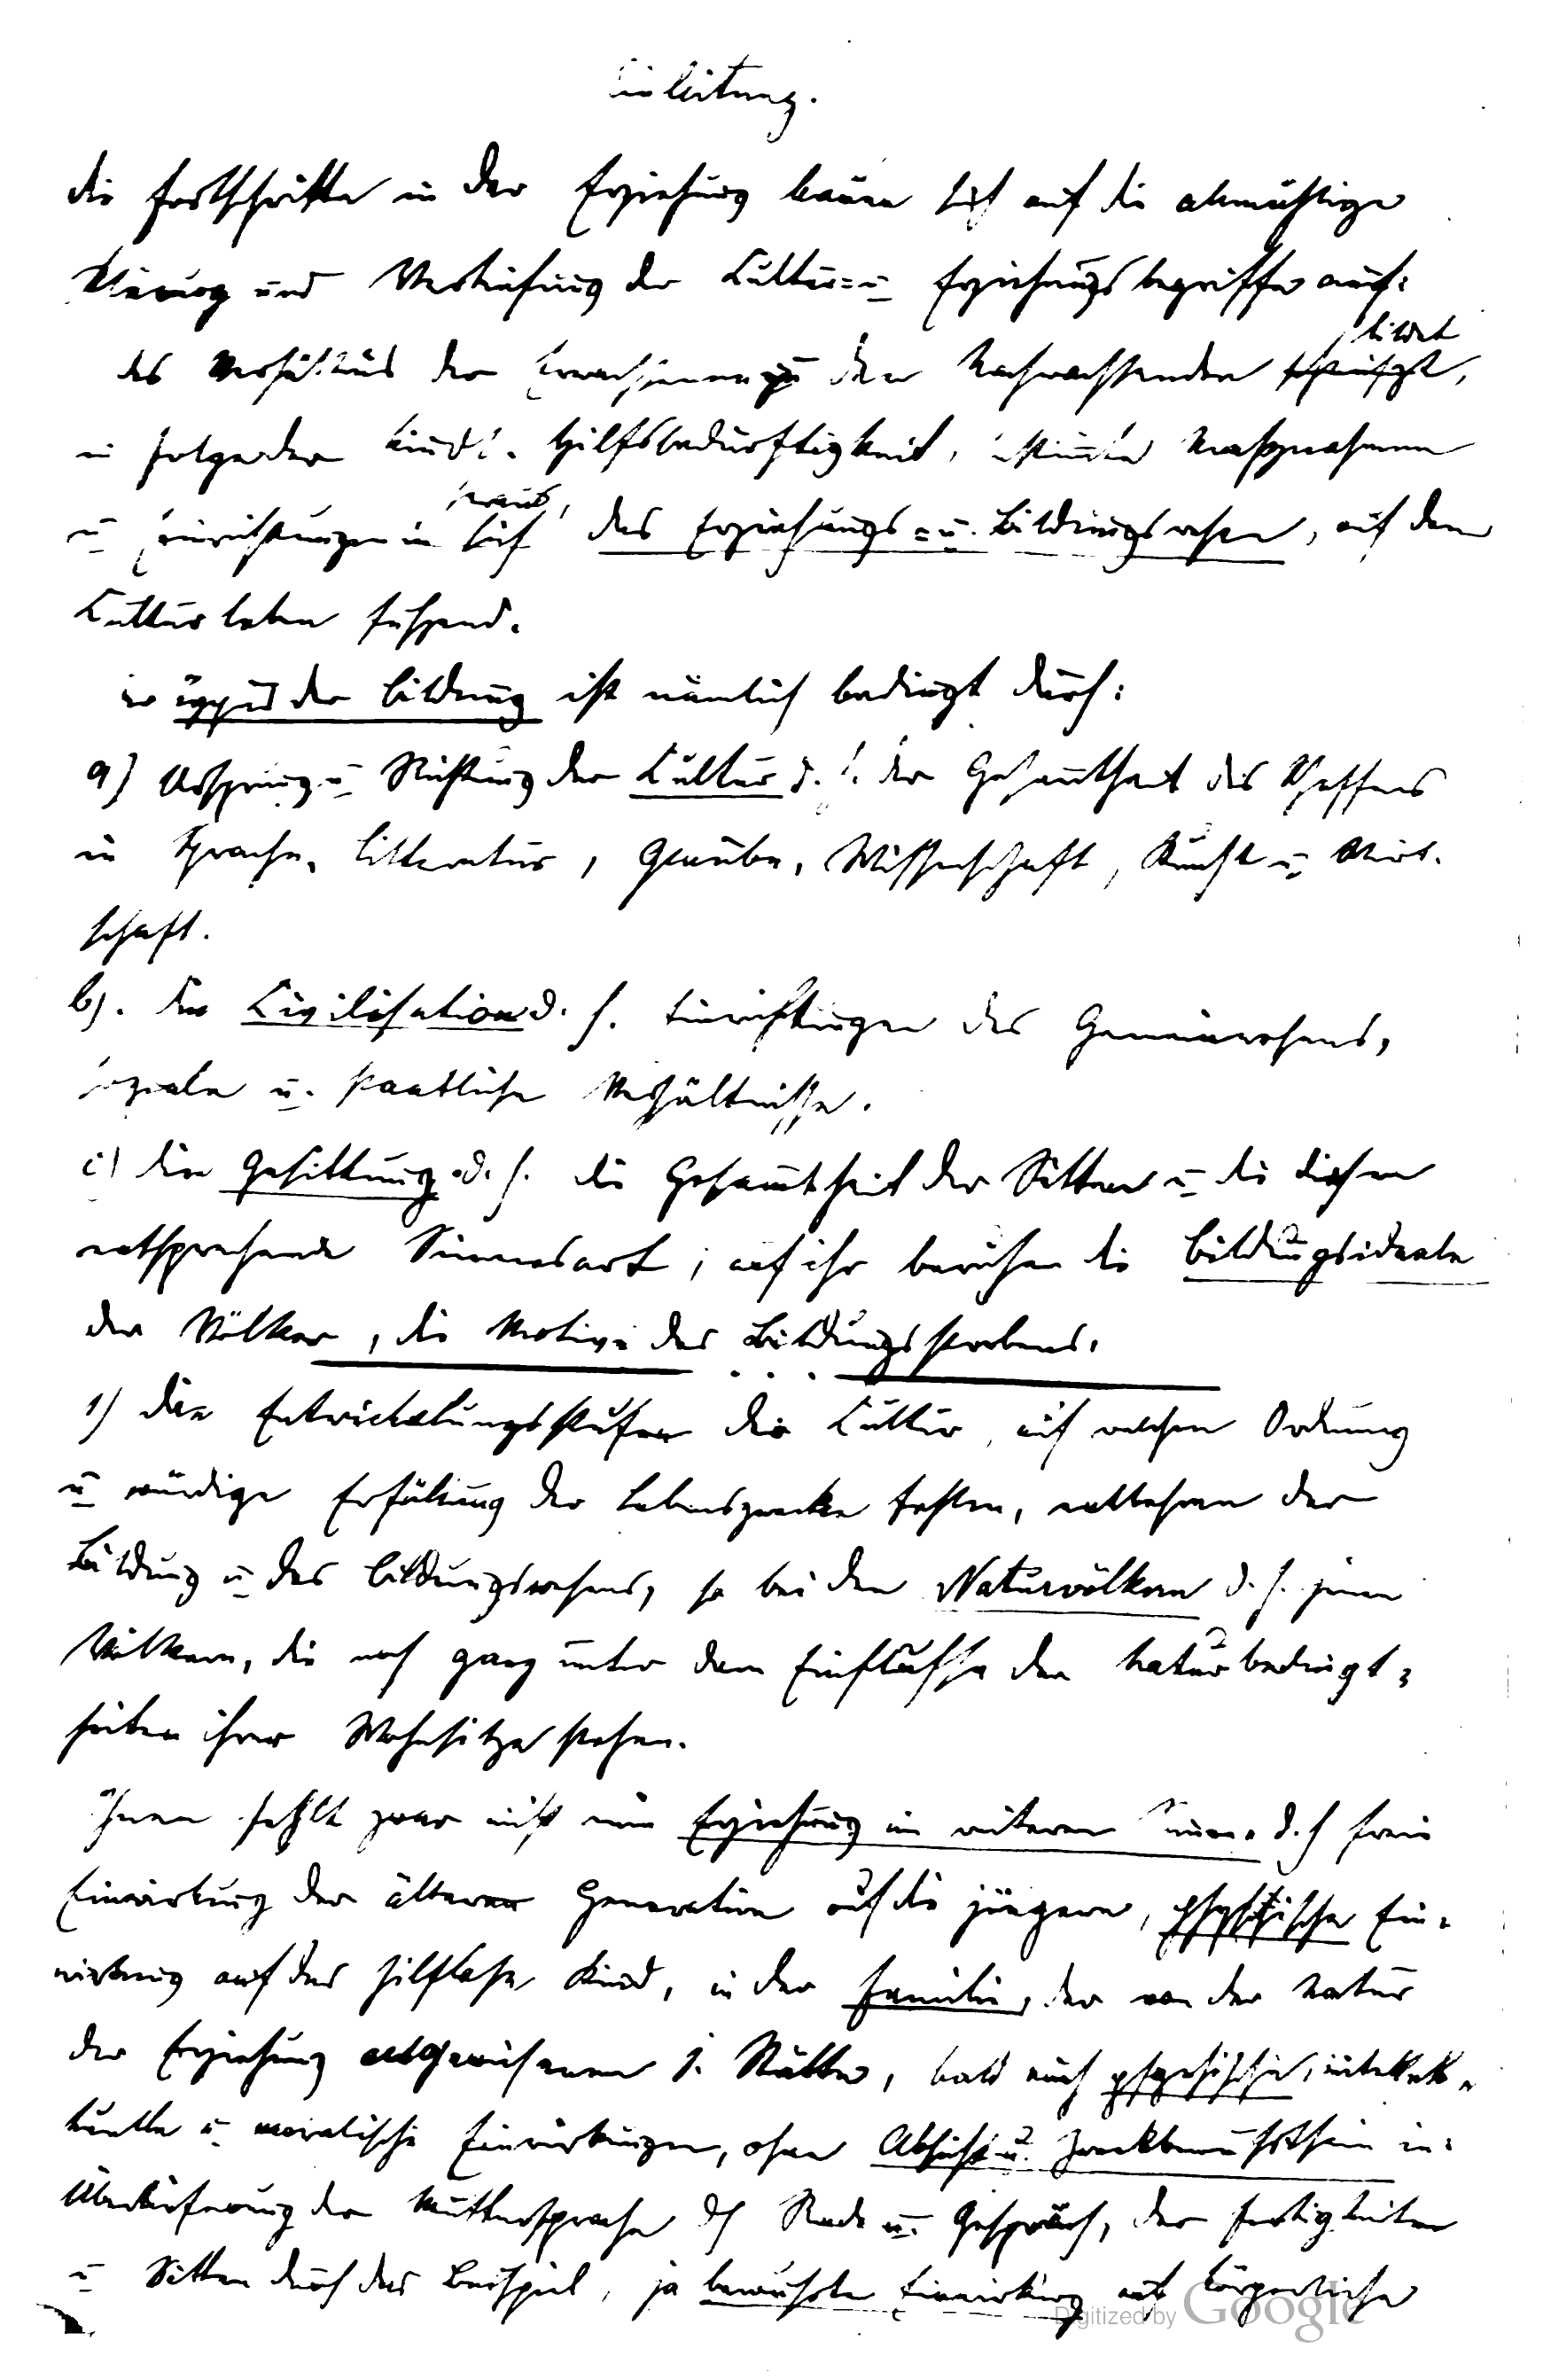 Einleitung.
Die Fortschritte in der Erziehung bauen sich auf die allmählige
Klärung und Vertiefung der Cultur= u Erziehungsbegriffe auf:
das Verhältnis der Erwachsenen zu den Nachwachsenden bildet,
in Folge der kindl. Hilfsbedürftigkeit, bestimmte Maßnahmen
u Einrichtungen in sich heraus, das Erziehungs= u. Bildungswesen, auf dem
Culturleben fußend.
der Bildung ist nämlich bedingt durch:
a) Ursprung u Richtung der Cultur d. h. der Gesamtheit des Schaffens
in Sprache, Litteratur, Glaube, Wissenschaft, Kunst u Wirt-
schaft.
b). die Civilisation d. h. Einrichtungen des Gemeinwesens,
soziale u. staatliche Verhältnisse.
c) die Gesittung d. h. die Gesammtheit der Sitten u die diesen
entsprechende Sinnesart; auf ihr beruhen die Bildungsideale
der Völker, die Motive des Bildungsstrebens.
1) die Entwickelungsstufen der Cultur, auf welchen Ordnung
u würdige Erfüllung der Lebenszwecke fehlen, entbehren der
Bildung u des Bildungswesens, so bei den Naturvölkern d. h. jenen
Völkern, die noch ganz unter dem Einflusse der Naturbedingt=
heiten ihrer Wohnsitze stehen.
Ihnen fehlt zwar nicht eine Erziehung im weiteren Sinne d. h freie
Einwirkung der älteren Generation auf die jüngere, physische Ein=
wirkung auf das hilflose Kind, in der Familie, der von der Natur
der Erziehung angewiesenen Stätte, bald auch psychische, intellek=
tuelle u moralische Einwirkungen, ohne Absicht u. Zweckbewußtsein in:
Überlieferung der Muttersprache dch Rede u. Gespräch, der Fertigkeiten
u Sitten durch das Beispiel, ja bewußte Einwirkung auf körperliche
Digitized by Google